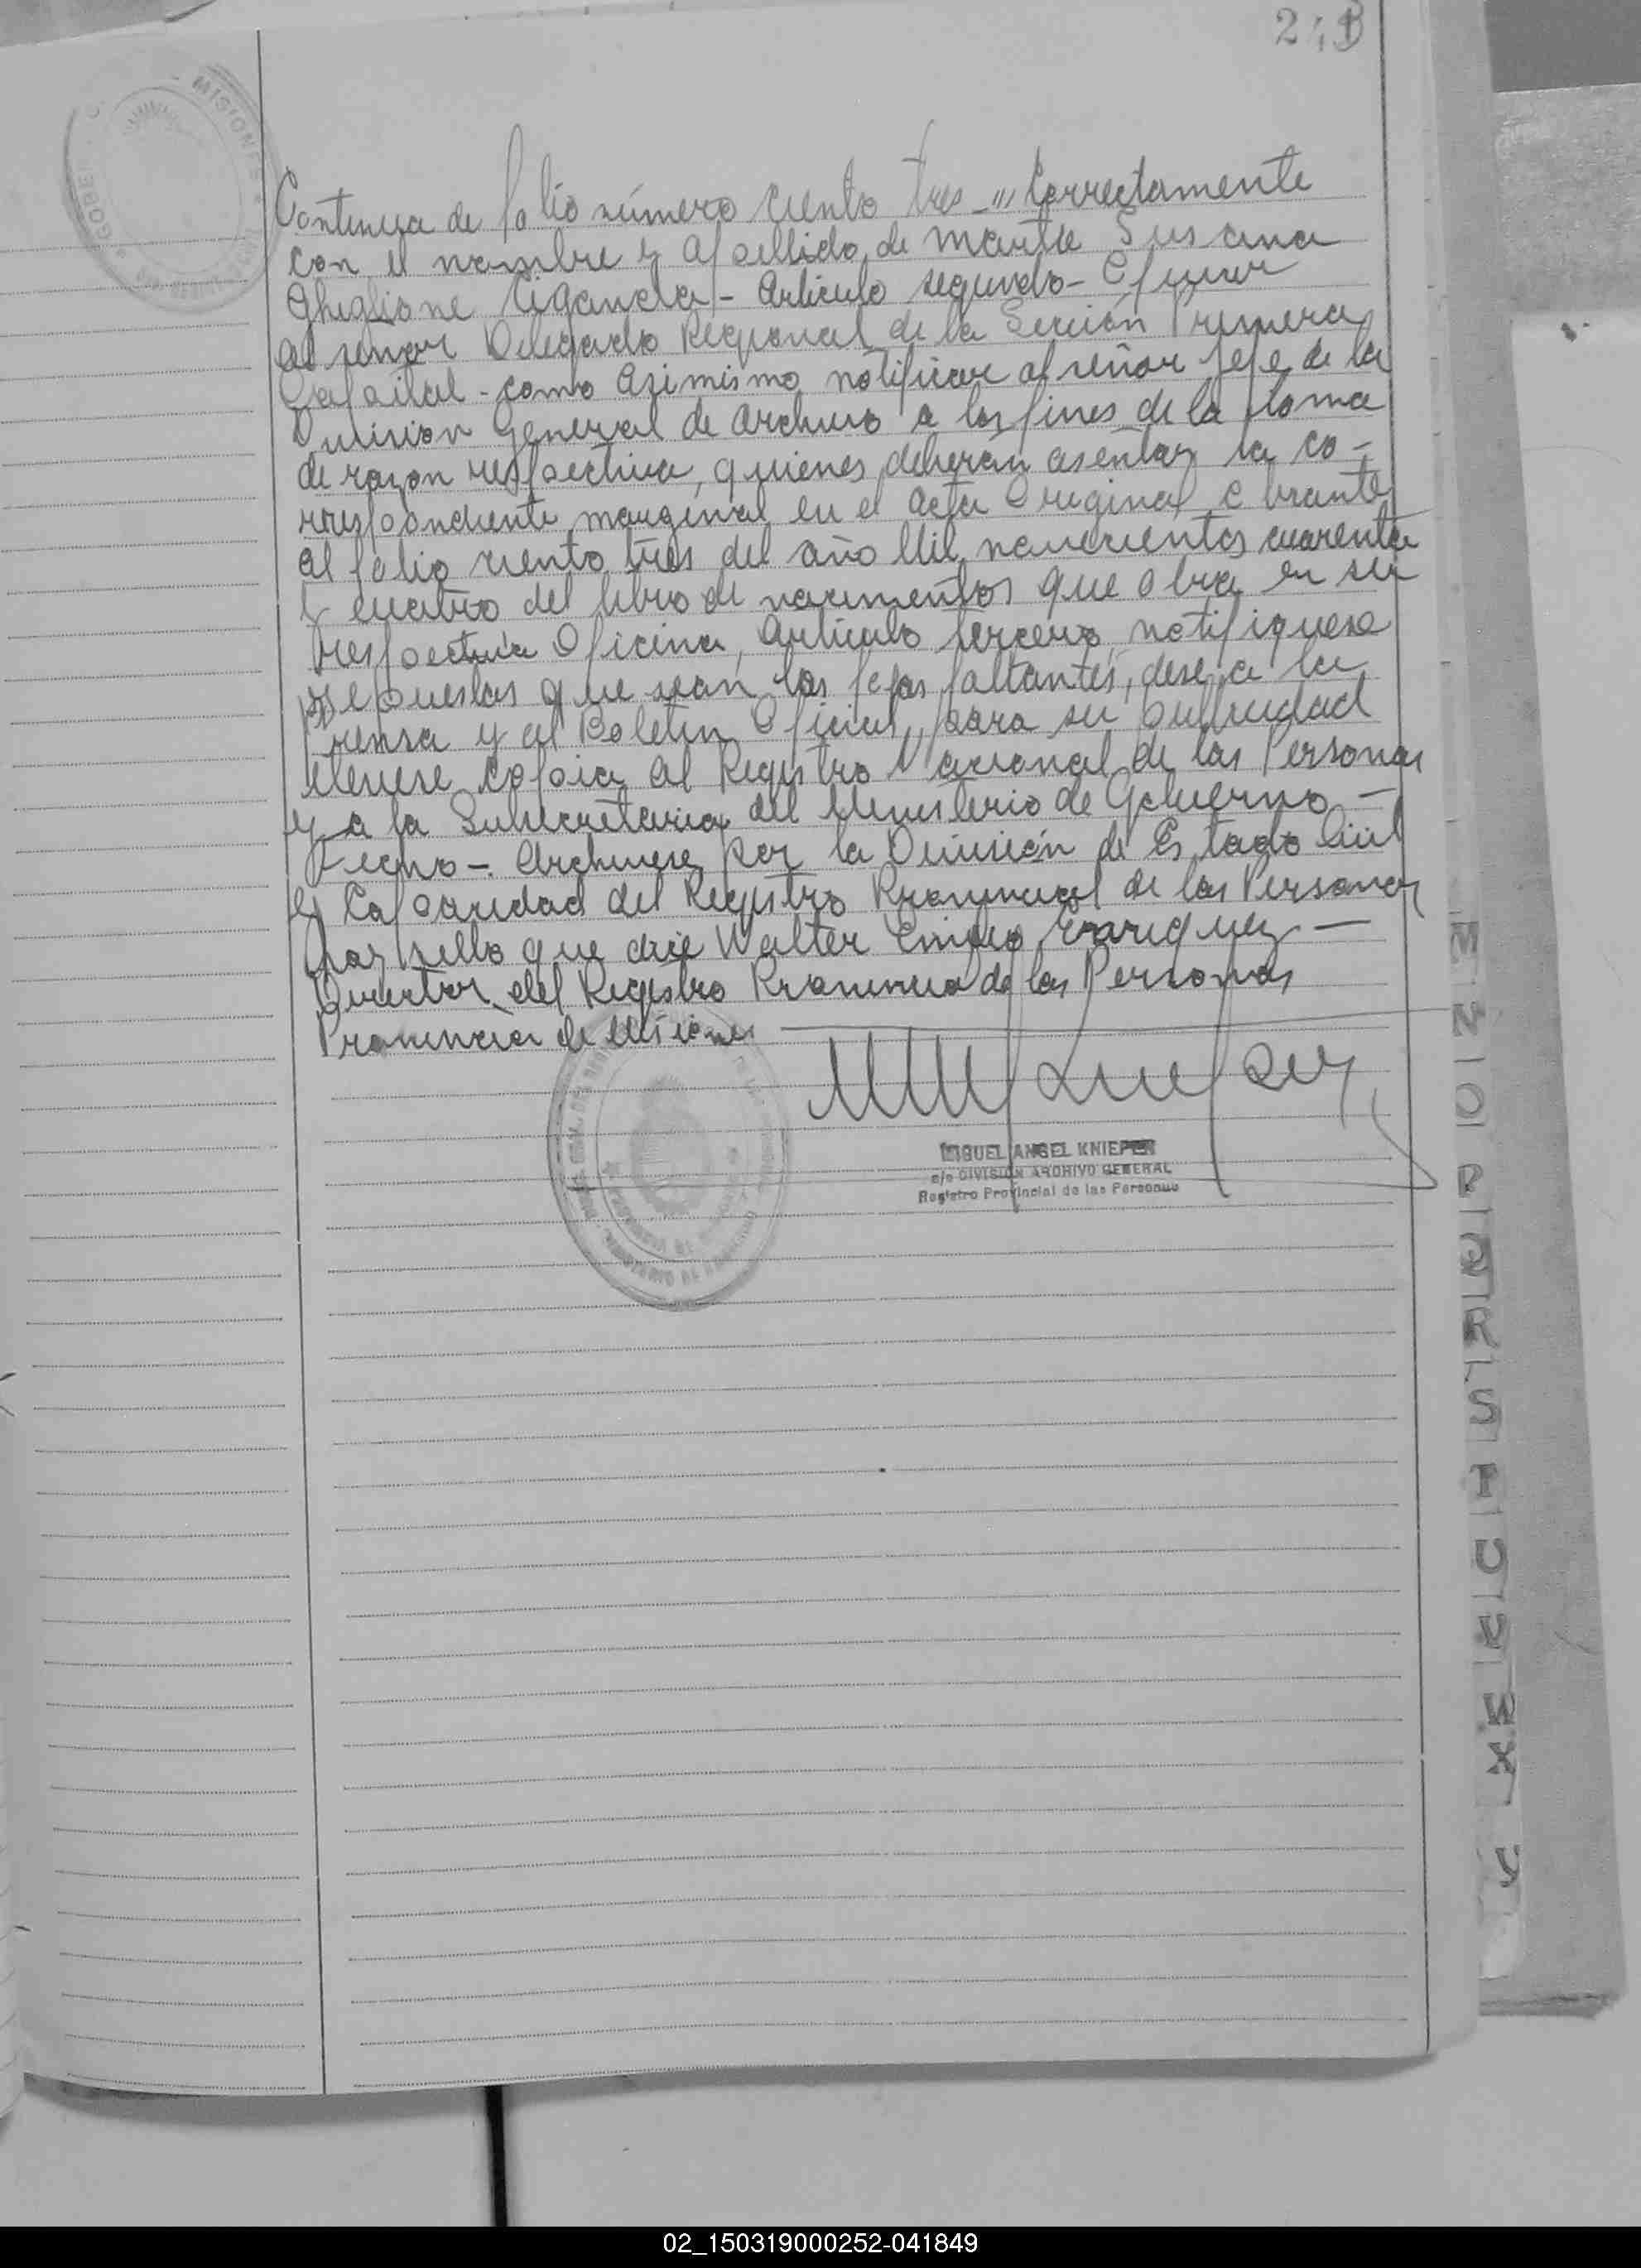 241
MISIONES
Continua de folio número ciento tres -"" Correctamente
con el nombre y apellido de Martha Susana
Ghiglione Ciganda - Articulo segundo - Oficiar
al señor Delegado Regional de la Sección Primera
Capital - como asimismo notificar al señor jefe de la
Division General de Archivo a los fines de la toma
de razon respectiva, quienes deberán asentar la co-
rrespondiente marginal en el acta Original obrante
al folio ciento tres del año Mil novecientos cuarenta
y cuatro del libro de nacimentos que obra en su
respectiva Oficina, Articulo tercero, notifiquese
repuestas que sean las fojas faltantes, dese a la
prensa y al Boletin Oficial, para su publicidad
elevese copia al Registro Nacional de las Personas
y a la Subsecretaria del Ministerio de Gobierno -
Fecho -. Archivese por la División de Estado Civil
y Capacidad del Registro Provincial de las Personas
hay sello que dice Walter Emilio Enriquez -
Director del Registro Provincial de las Personas
Provincia de Misiones
MIGUEL ANGEL KNIEPER
a/c DIVISIÓN ARCHIVO GENERAL
Registro Provincial de las Personas
M
N
O
P
Q
R
S
T
U
V
W
X
02_150319000252-041849